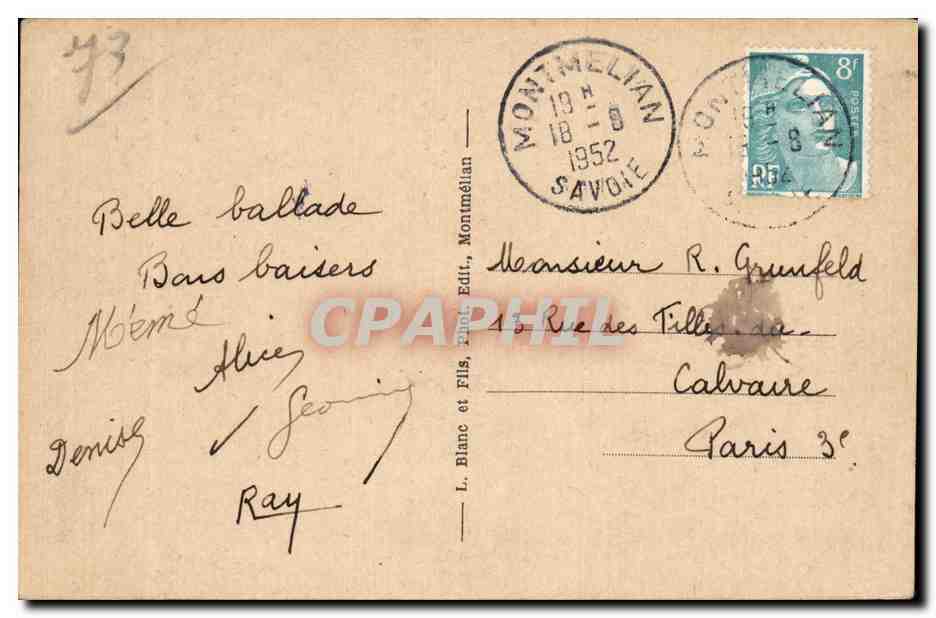 73
MONTMELIAN
19 H
18 - 8
1952
SAVOIE
MONTMELIAN
- 8
8f
POSTES
RF
Belle ballade
Bons baisers
Mémé
Alice
Denise
Ray
L. Blanc et Fils, Phot. Edit., Montmélian
Monsieur R. Grunfeld
13 Rue des Filles du
Calvaire
Paris 3e
CPAPHIL